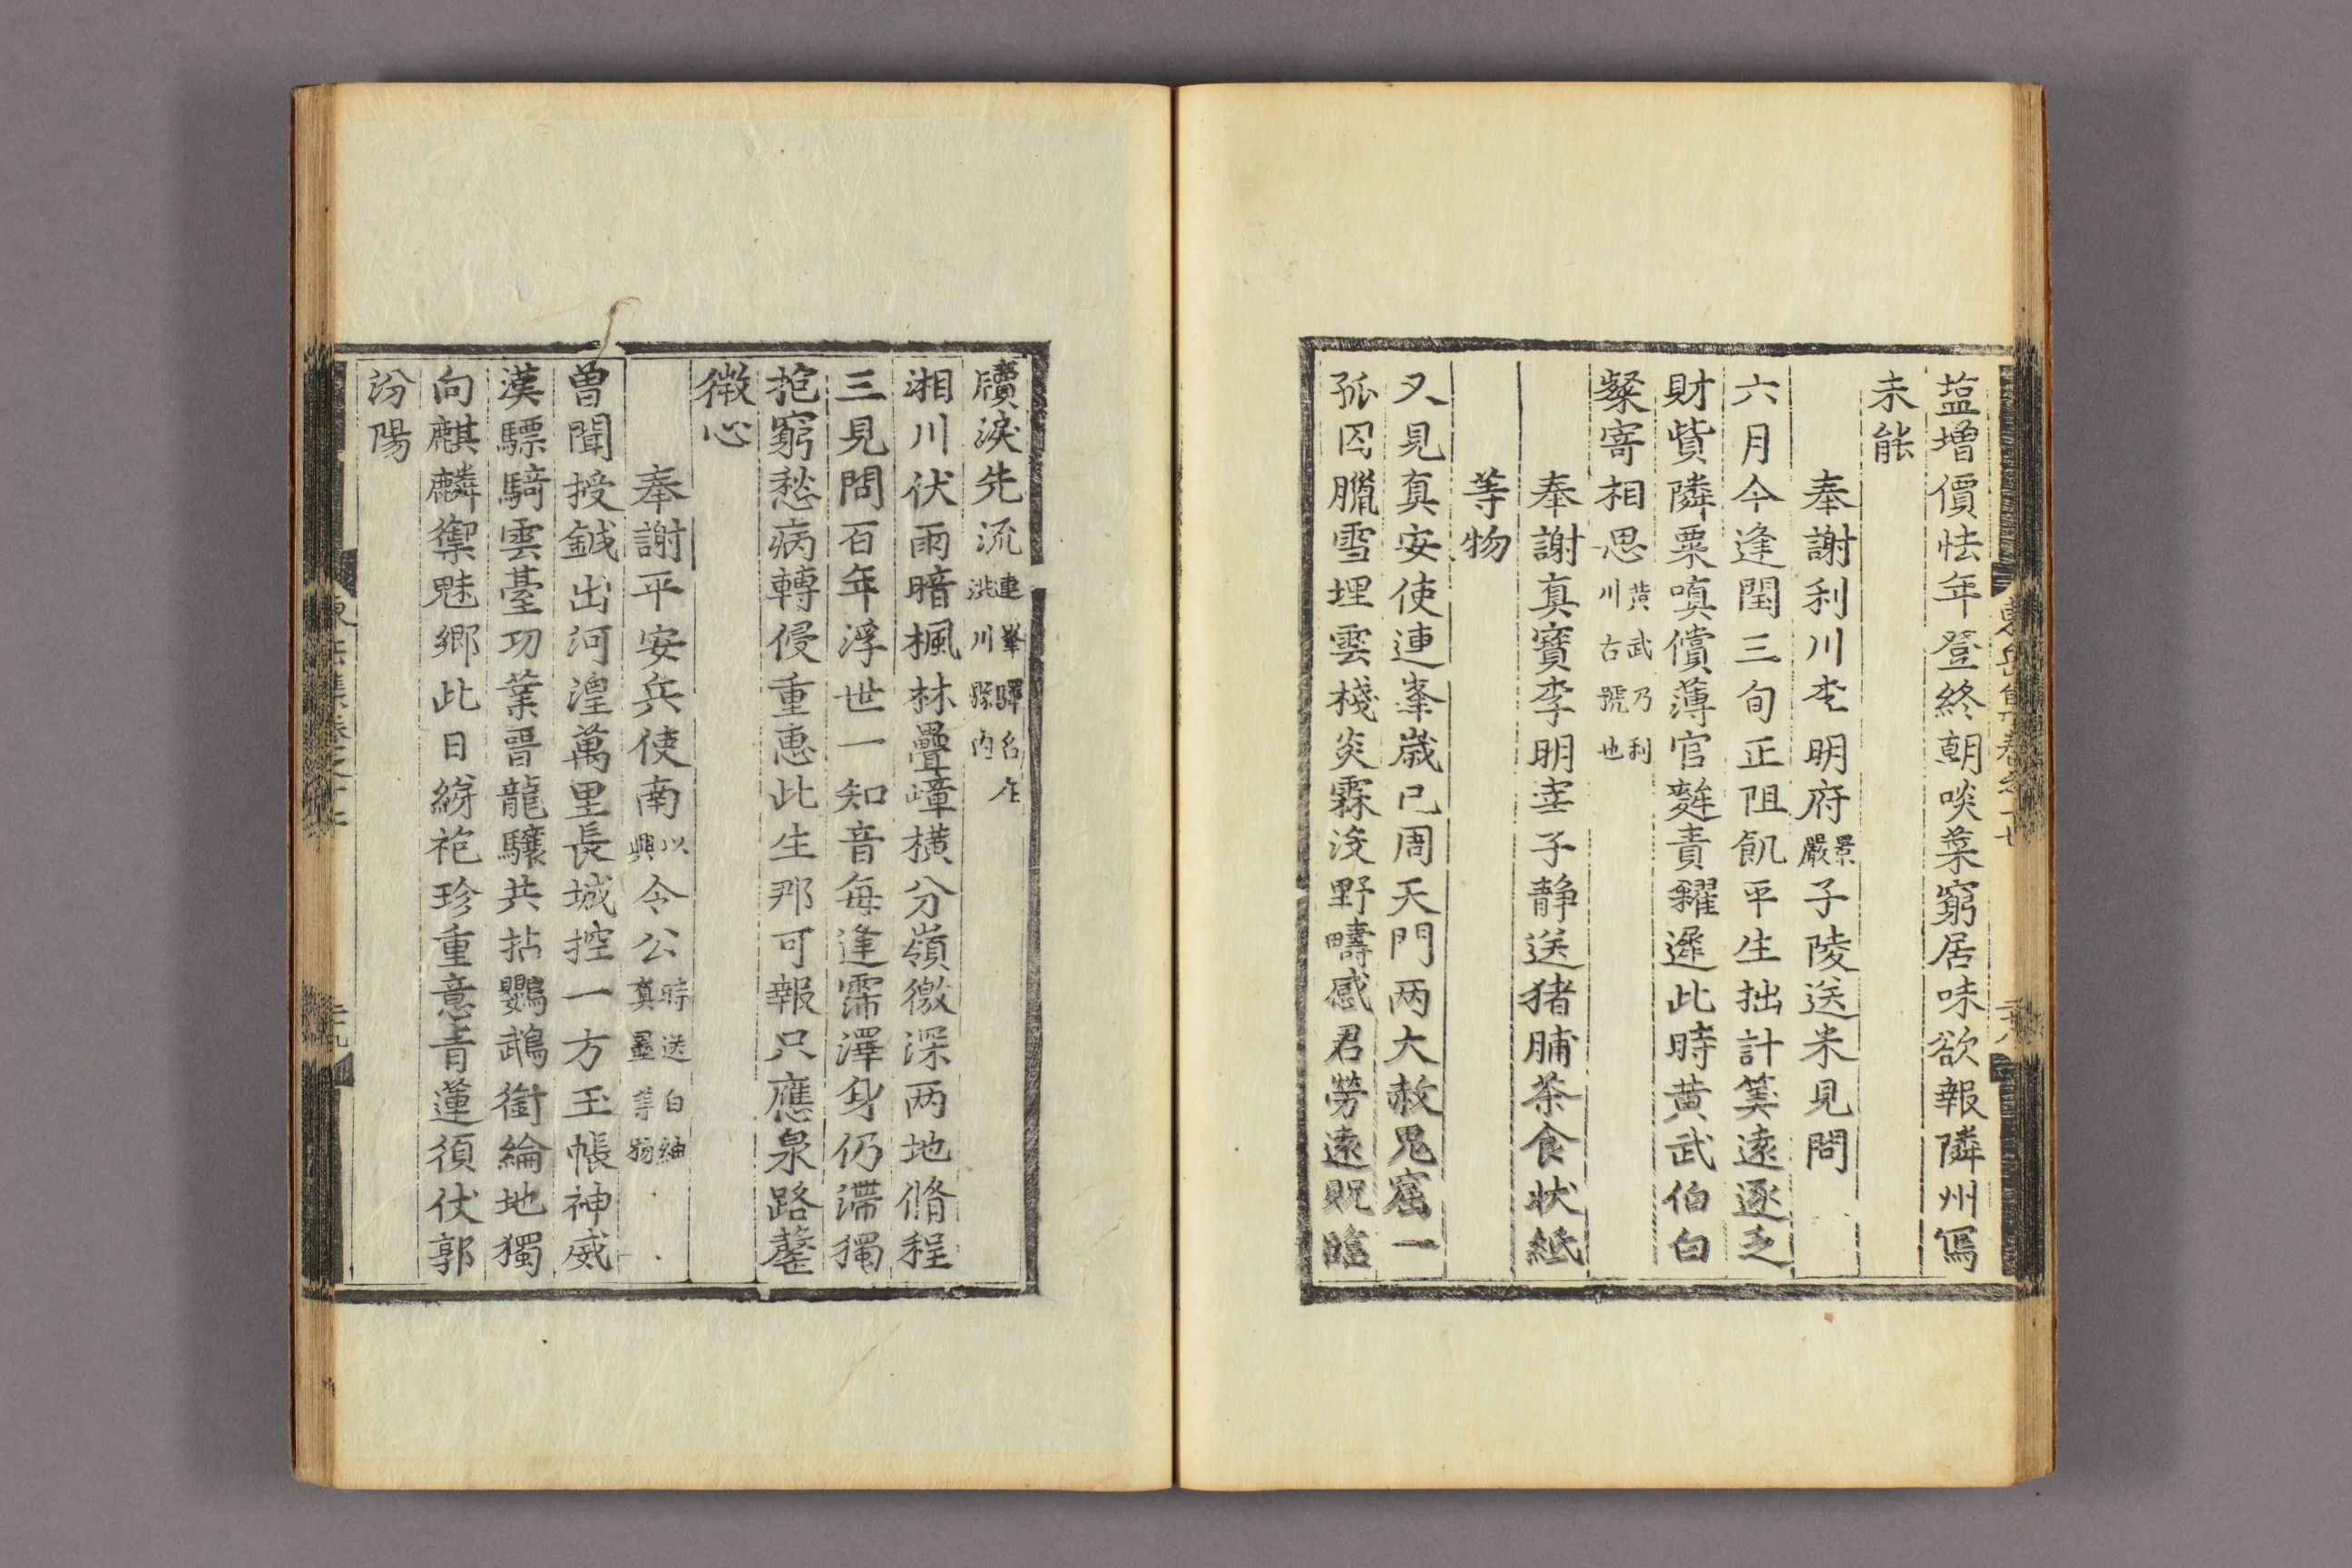 塩增價怯年登終朝啖葉窮居味欲報隣州寫
未能
奉謝利川李明府景嚴子陵送米見問
六月今逢閏三旬正阻飢平生拙計筭遠逐乏
財貲隣粟嗔償薄官麰責糴遲此時黄武伯白
粲寄相思黄武乃利川古號也
奉謝真寶李明宰子静送猪脯茶食状紙
等物
又見真安使連峯歳已周天門兩大赦鬼窟一
孤囚臘雪埋雲棧炎霖没野疇感君勞遠貺臨
牘淚先流連峯驛名在洪川縣內
湘川伏雨暗楓林疊嶂橫分嶺徼深兩地脩程
三見問百年浮世一知音每逢霈澤身仍滯獨
抱窮愁病轉侵重惠此生那可報只應泉路罄
微心
奉謝平安兵使南以興令公時送白紬真墨等物
曽聞授鉞出河湟萬里長城控一方玉帳神威
漢驃騎雲臺功業晋龍驤共拈鸚鵡銜綸地獨
向麒麟禦魅鄉此日綈袍珍重意青蓮須仗郭
汾陽